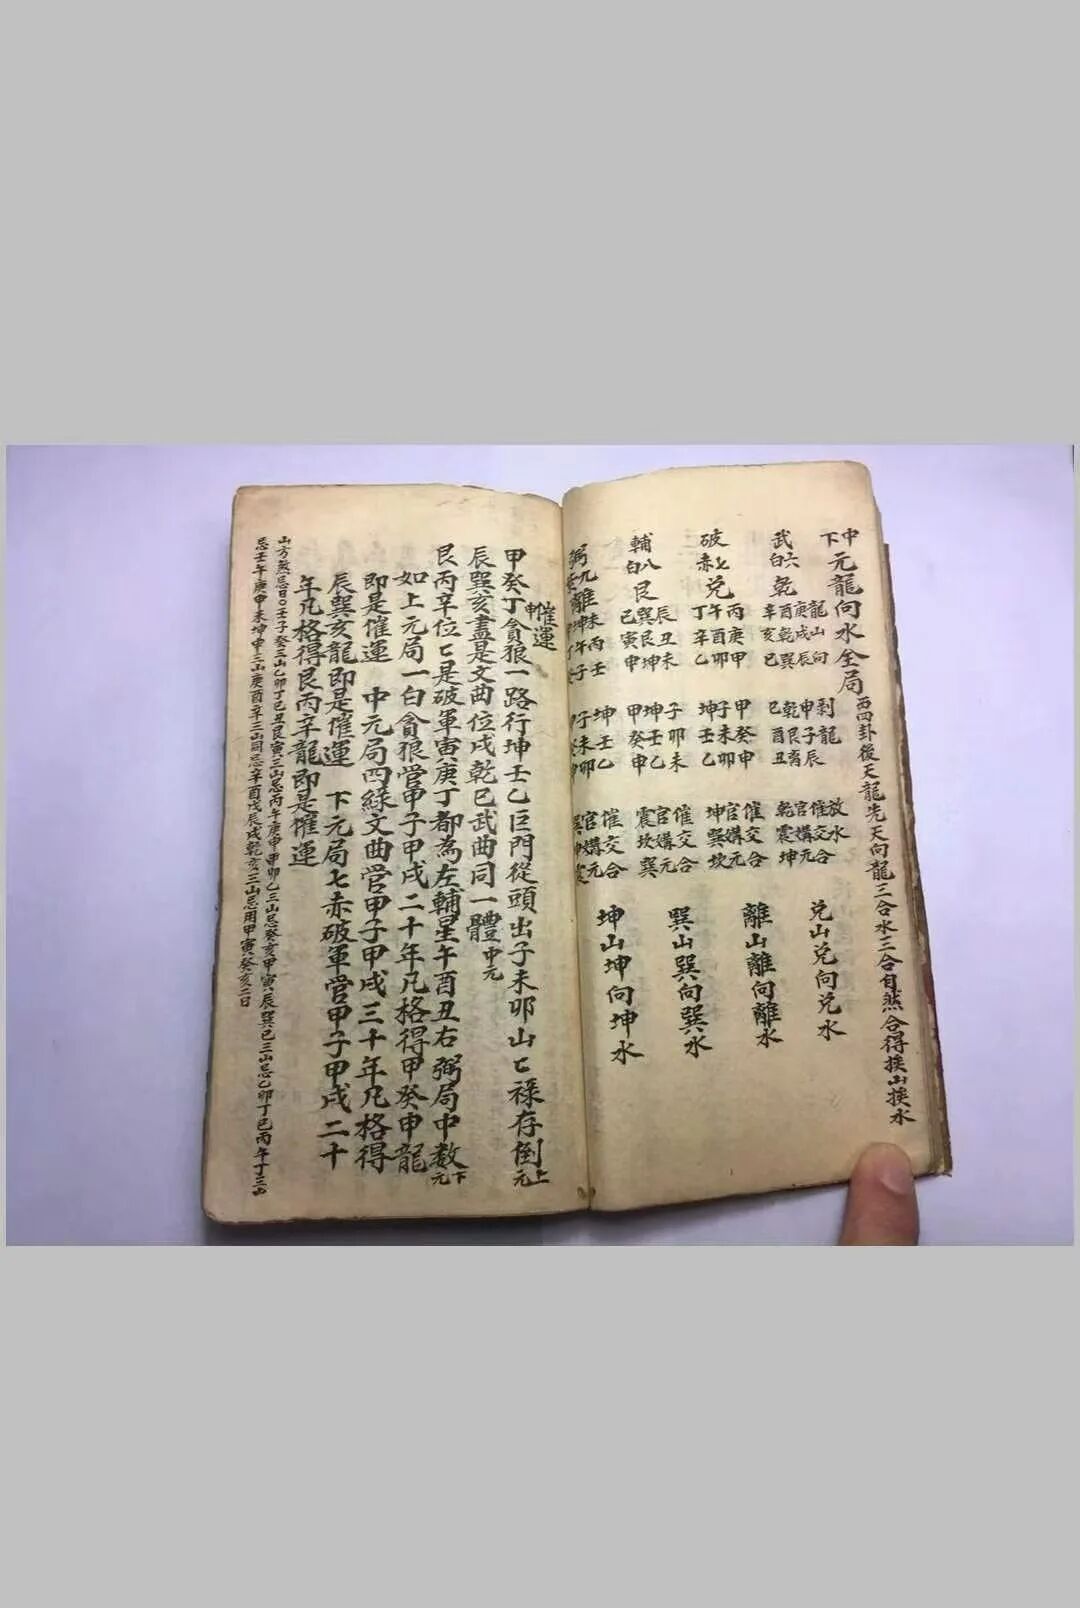 中下元龍向水全局 西四卦後天龍先天向龍三合水三合自然合得挨山挨水
武六白 乾 龍山向 庚戌辰 酉乾巽 辛亥巳
剥龍 申子辰 乾艮离 巳酉丑
放水 催交合 官媾元 乾震坤
兌山兌向兌水
破七赤 兌 丙庚甲 午酉卯 丁辛乙
甲癸申 子未卯 坤壬乙
催交合 官媾元 坤巽坎
離山離向離水
輔八白 艮 辰丑未 巽艮坤 巳寅申
子卯未 坤壬乙 甲癸申
催交合 官媾元 震坎巽
巽山巽向巽水
弼九 離 未丙壬
坤壬乙 子未卯
催交合 官媾元
坤山坤向坤水
催運
甲癸申丁貪狼一路行坤壬乙巨門從頭出子未卯山七祿存倒上元
辰巽亥盡是文曲位戌乾巳武曲同一體中元
艮丙辛位七是破軍寅庚丁都為左輔星午酉丑右弼局中数下元
如上元局一白貪狼営甲子甲戌二十年凡格得甲癸申龍
即是催運 中元局四綠文曲営甲子甲戌三十年凡格得
辰巽亥龍即是催運 下元局七赤破軍営甲子甲戌二十
年凡格得艮丙辛龍即是催運
山方煞忌日〇壬子癸三山乙卯丁巳丑艮寅三山忌丙午庚申甲卯乙三山忌癸亥甲寅辰巽巳三山忌乙卯丁巳丙午丁三山
忌壬午庚申未坤申三山庚酉辛三山同忌辛酉戊辰戌乾亥三山忌用甲寅癸亥二日